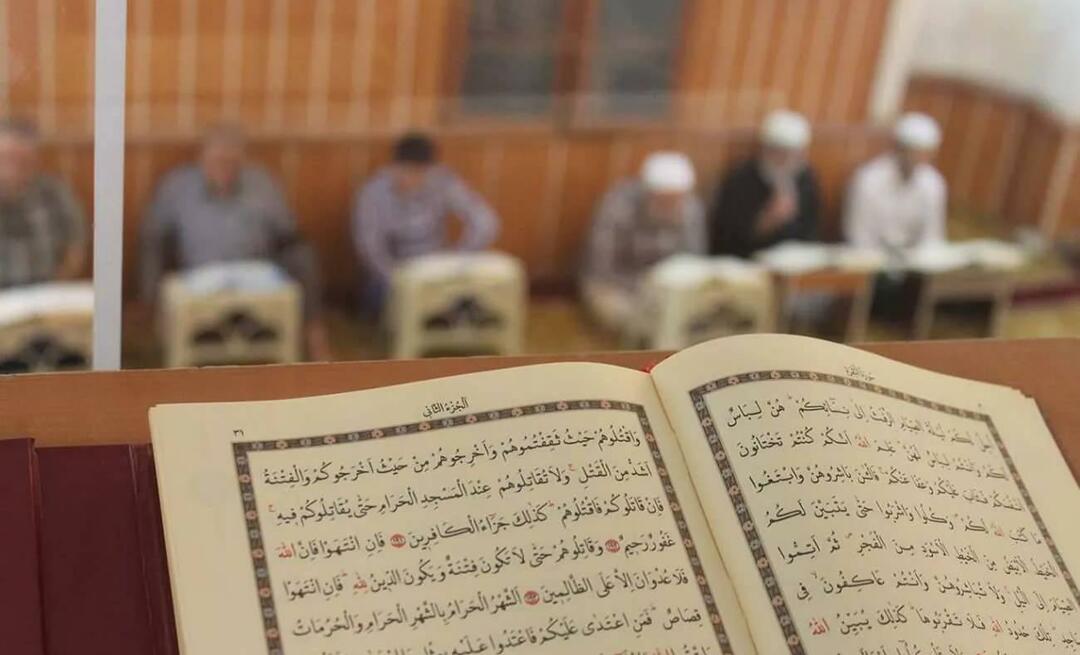 سورة البقرة
اُحِلَّ لَكُمْ لَيْلَةَ الصِّيَامِ الرَّفَثُ اِلٰى نِسَائِكُمْ هُنَّ لِبَاسٌ
لَكُمْ وَاَنْتُمْ لِبَاسٌ لَهُنَّ عَلِمَ اللّٰهُ اَنَّكُمْ كُنْتُمْ تَخْتَانُونَ
اَنْفُسَكُمْ فَتَابَ عَلَيْكُمْ وَعَفَا عَنْكُمْ فَالْاٰنَ بَاشِرُوهُنَّ وَابْتَغُوا
مَا كَتَبَ اللّٰهُ لَكُمْ وَكُلُوا وَاشْرَبُوا حَتّٰى يَتَبَيَّنَ لَكُمُ
الْخَيْطُ الْاَبْيَضُ مِنَ الْخَيْطِ الْاَسْوَدِ مِنَ الْفَجْرِ ثُمَّ اَتِمُّوا
الصِّيَامَ اِلَى الَّيْلِ وَلَا تُبَاشِرُوهُنَّ وَاَنْتُمْ عَاكِفُونَ فِى
تِلْكَ حُدُودُ اللّٰهِ فَلَا تَقْرَبُوهَا كَذٰلِكَ يُبَيِّنُ اللّٰهُ
اَلْجُزْءُ الثَّانِى
وَاقْتُلُوهُمْ حَيْثُ ثَقِفْتُمُوهُمْ وَاَخْرِجُوهُمْ مِنْ حَيْثُ اَخْرَجُوكُمْ وَالْفِتْنَةُ
اَشَدُّ مِنَ الْقَتْلِ وَلَا تُقَاتِلُوهُمْ عِنْدَ الْمَسْجِدِ الْحَرَامِ حَتّٰى يُقَاتِلُوكُمْ فِيهِ
فَاِنْ قَاتَلُوكُمْ فَاقْتُلُوهُمْ كَذٰلِكَ جَزَاءُ الْكَافِرِينَ فَاِنِ انْتَهَوْا فَاِنَّ اللّٰهَ
غَفُورٌ رَحِيمٌ وَقَاتِلُوهُمْ حَتّٰى لَا تَكُونَ فِتْنَةٌ وَيَكُونَ الدِّينُ لِلّٰهِ فَاِنِ انْتَهَوْا
فَلَا عُدْوَانَ اِلَّا عَلَى الظَّالِمِينَ اَلشَّهْرُ الْحَرَامُ بِالشَّهْرِ الْحَرَامِ وَالْحُرُمَاتُ
قِصَاصٌ فَمَنِ اعْتَدٰى عَلَيْكُمْ فَاعْتَدُوا عَلَيْهِ